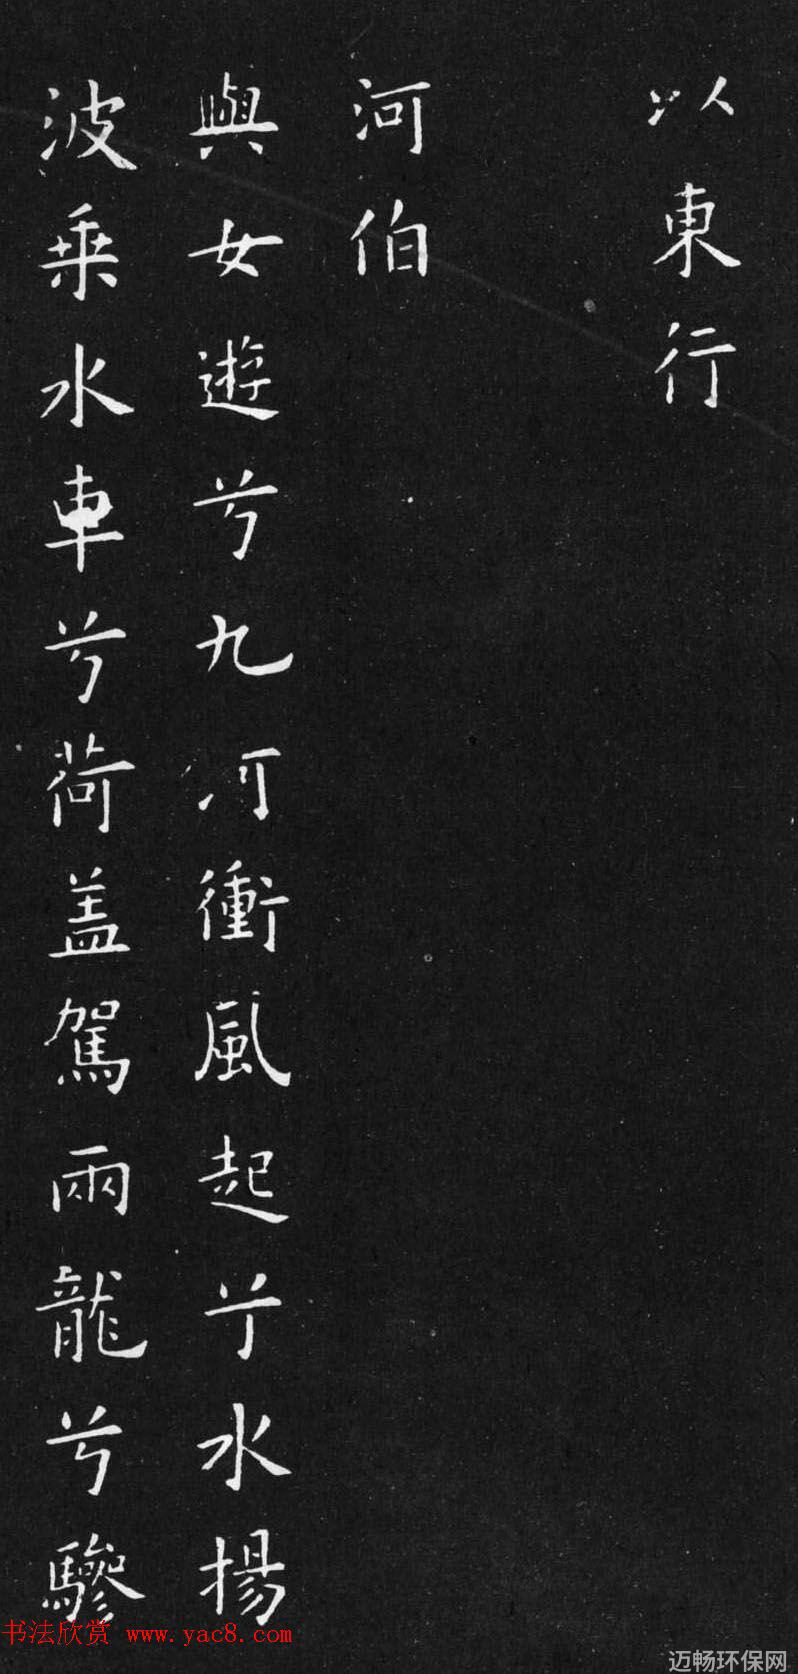 以東行
河伯
與女遊兮九河衝風起兮水揚
波乗水車兮荷盖駕兩龍兮驂
书法欣赏 www.yac8.com
迈畅环保网